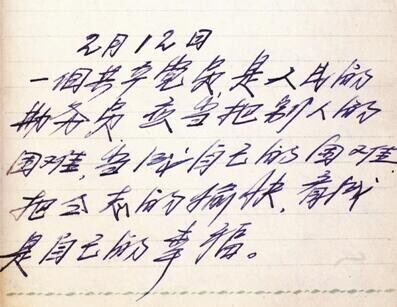 2月12日
一個共产党员是人民的
勤务员,应当把别人的
困难,当成自己的困难
把仝志的愉快,看成
是自己的幸福。